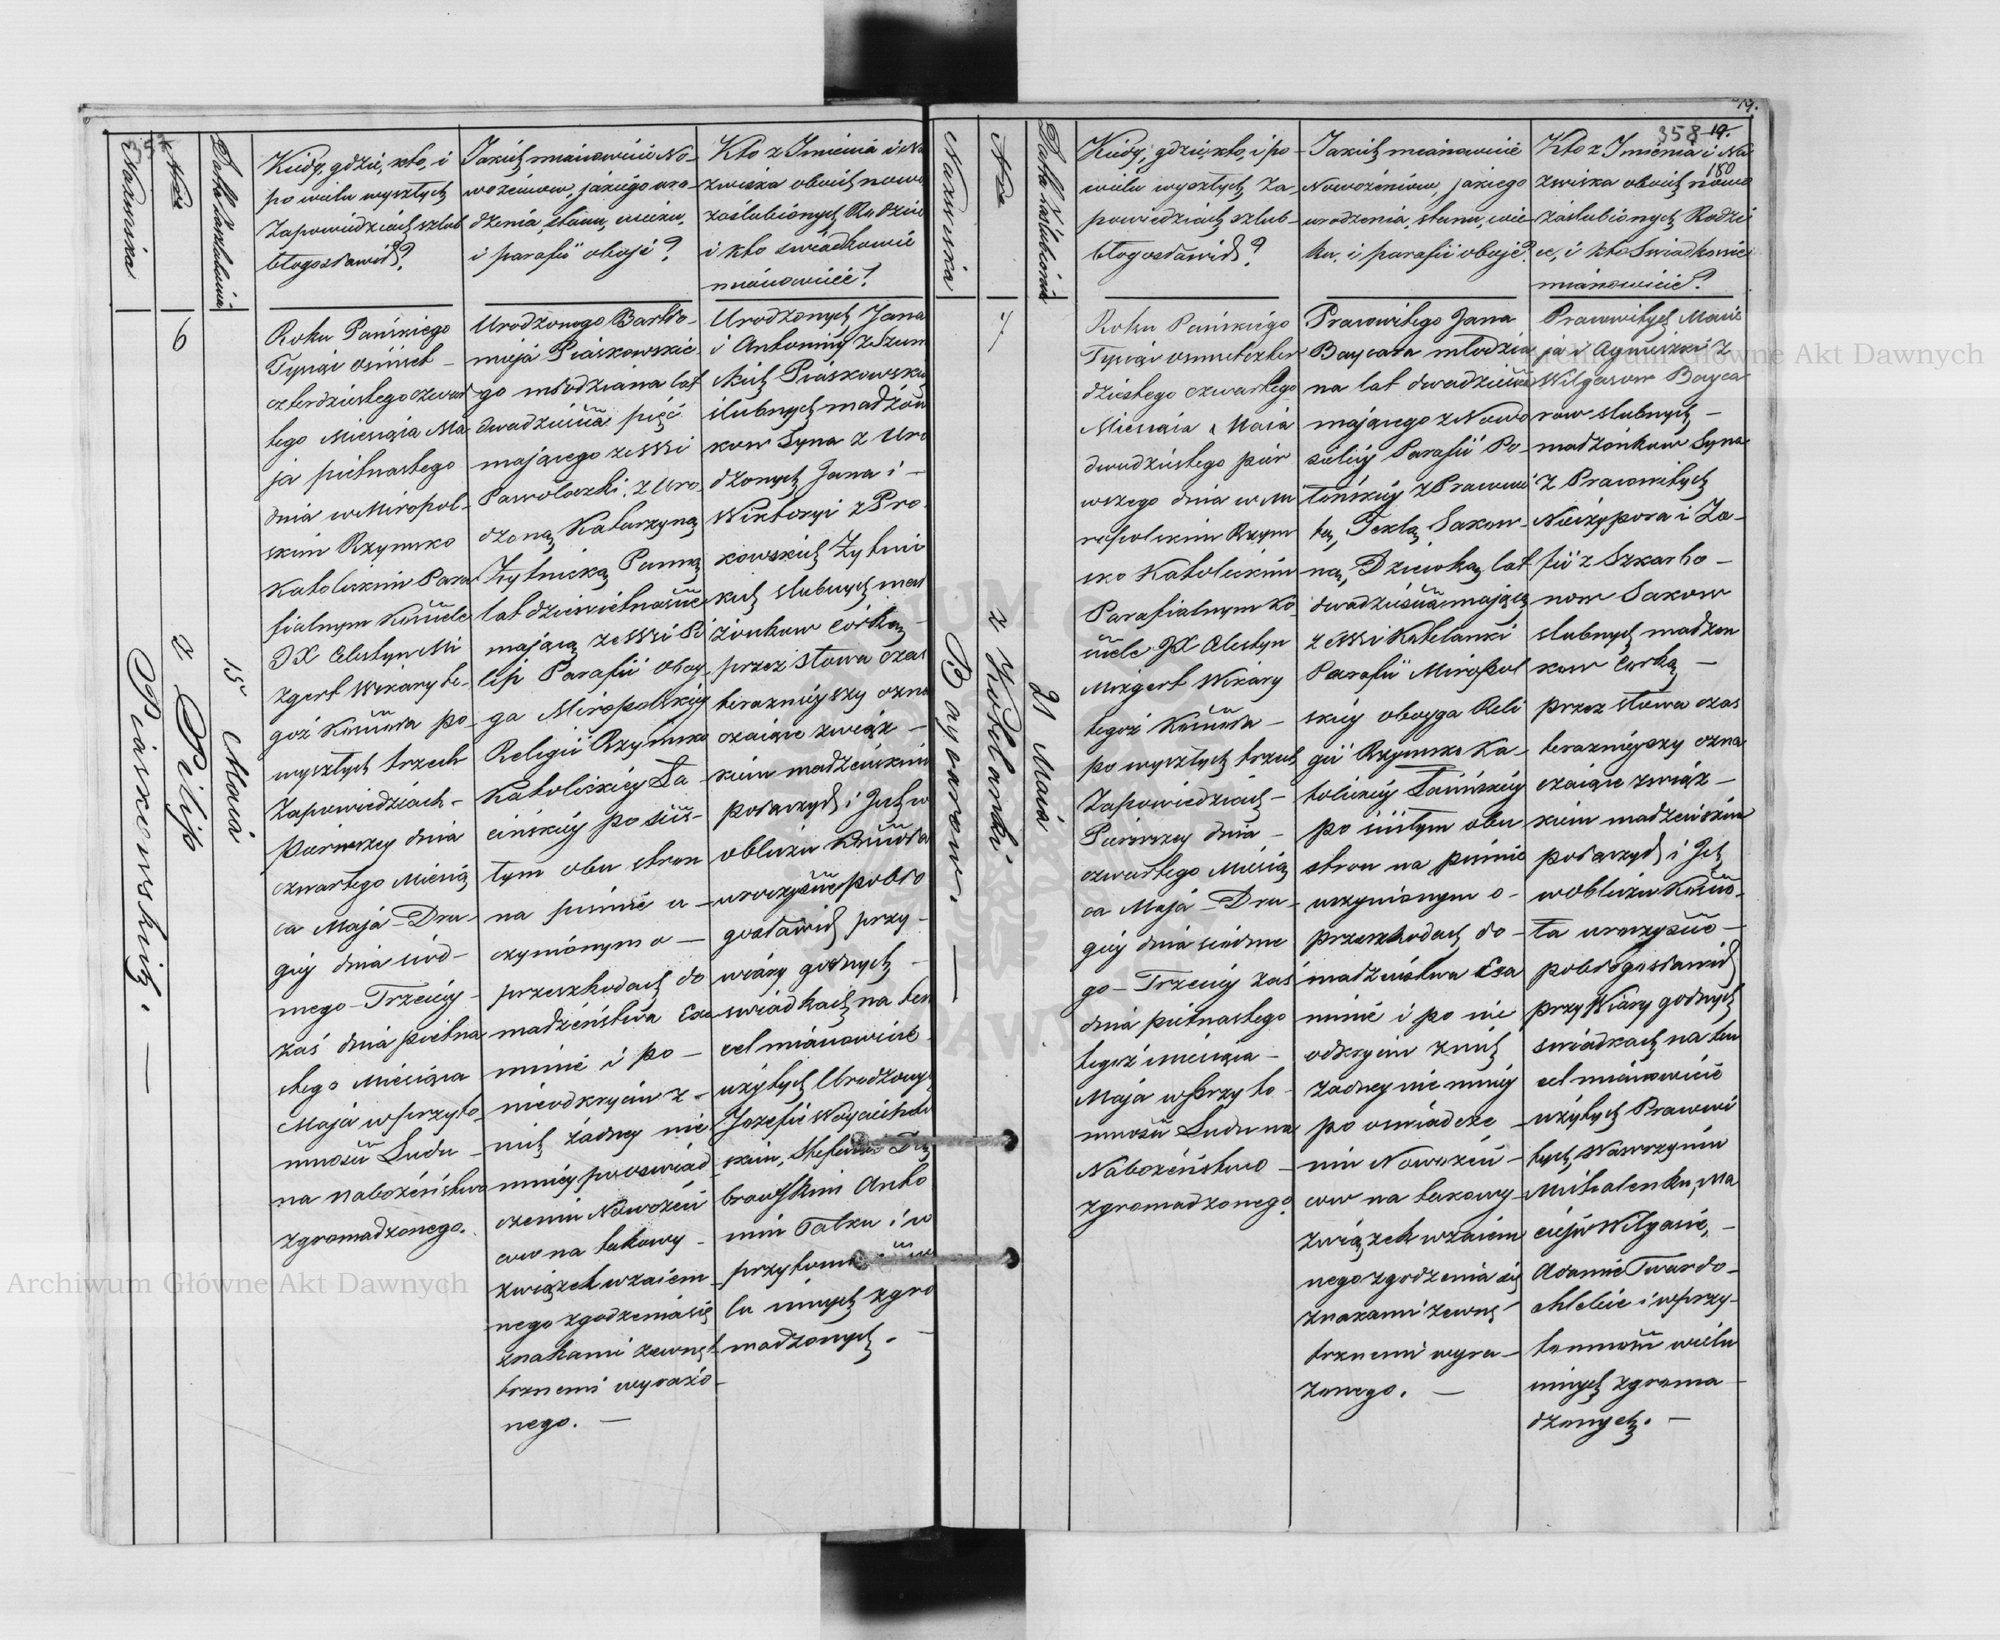 Nazwiska
Nro
Data Zaslubienia
Kiedy, gdzie, kto, i
po wielu wyszłych
Zapowiedziach szlub
błogosławił?
Jakich mianowicie No-
wożeńcow, jakiego uro
dzenia, stanu, wieku,
i parafii oboje?
Kto z Imienia i Na
zwiska oboich nowo
zaślubionych Rodzice
i kto swiadkowie
mianowicie?
6
z Pilip
Piaskowskich. —
15 Maia
Roku Pańskiego
Tysiąc osimset —
czterdziestego czwar
tego Miesiąca Ma
ja pietnastego
dnia w Miropol-
skim Rzymsko
Katolickim Para
fialnym Kościele
JX Celestyn Mi
zgert Wikary te-
goż Kościoła po-
wyszłych trzech
Zapowiedziach —
pierwszey dnia
czwartego Miesią
ca Maja — Dru-
giey dnia siód-
mego — Trzeciey —
zaś dnia pietna
stego Miesiąca
Maja w przyto
mnosci Ludu —
na nabożeństwo
zgromadzonego.
Urodzonego Bartło-
mieja Piaskowskie
go młodziana lat
dwadzieścia pięć
mającego ze Wsi
Pawołoczki, z Uro
dzoną Katarzyną
Żytnicką Panną
lat dziewietnaście
mającą ze Wsi Pi
lip Parafii oboy-
ga Miropolskiey
Religii Rzymsko
Katolickiey Ła
cińskiey po scis-
łym obu stron
na pismie u-
czynionym o —
przeszkodach do
madżeństwa Exa
minie i po —
nieodkryciu z —
nich żadney nie
mniey po oswiad
czeniu Nowożeń
cow na takowy —
związek wzaiem-
nego zgodzenia się
znakami zewnęt
trznemi wyrażo-
nego. —
Urodzonych Jana
i Antoniny z Szum
skich Piaskowskich
slubnych madżon
kow Syna z Uro
dzonych Jana i —
Wiktoryi z Pro-
kowskich Żytnic
kich slubnych mad
żonkow Córką —
przez słowa czas
teraznieyszy ozna
czaiące związ —
kiem madżeńskim
połaczył i Ich w
obliczu Kościoła
uroczyscie pobło
gosławił przy-
wiary godnych —
swiadkach na ten
cel mianowicie
użytych Urodzonych
Jozefie Woyciechow
skim, Stefanie Dą
browskim Anto
nim Tatku i w
przytomności wie
lu innych zgro
madzonych. —
19.
358 19.
180
Nazwiska
Nro
Data Zaslubienia
Kiedy, gdzie, kto, i po-
wielu wyszłych Za
powiedziach szlub-
błogosławił?
Jakich mianowicie
Nowożeńców, jakiego
urodzenia, stanu, wie-
ku, i parafii oboje?
Kto z Imienia i Na
zwiska oboich nowo
zaslubionych Rodzi
ce, i kto Swiadkowie
mianowicie?
7
z Kobelanki
Baycarow. —
21 Maia
Roku Pańskiego
Tysiąc osimsetczter
dziestego czwartego
Miesiąca Maia
dwudziestego pier
wszego dnia w Mi
ropolskim Rzym
sko Katolickim
Parafialnym Ko-
sciele JX Celestyn
Mizgert Wikary
tegoż Kościoła —
po wyszłych trzech
Zapowiedziach —
Pierwszey dnia —
czwartego Miesią
ca Maja — Dru-
giey dnia siódme
go — Trzeciey zaś
dnia pietnastego
tegoż miesiąca —
Maja w przyto-
mnosci Ludu na
Nabożeństwo —
zgromadzonego.
Prawowitego Jana
Baycara młodzia
na lat dwadzieścia
mającego z Nowo
sielicy Parafii Po-
łońskiey z Prawowi
tą, Teklą Sakow-
ną, Dziewką lat
dwadzieścia mającą
z Wsi Kobelanki
Parafii Miropol
skiey oboyga Reli
gii Rzymsko Ka-
tolickiey Łacińskiey
po scisłym obu
stron na pismie
uczynionym o-
przeszkodach do-
madżeństwa Exa
minie i po nie
odkryciu z nich
żadney nie mniey
po oswiadcze-
niu Nowożeń-
cow na takowy
związek wzaiem
nego zgodzenia się
znakami zewnę-
trznemi wyra-
żonego. —
Prawowitych Macie
ja i Agnieszki z
Wilgasow Bayca
row slubnych —
madżonkow Syna
z Prawowitych
Niczypora i Zo-
fii z Szkarbo-
now Sakow
slubnych madżon
kow Corką —
przez słowa czas
teraznieyszy ozna
czaiące związ —
kiem madżeńskim
połaczył i Ich
w Obliczu Kościo-
ła uroczyscie —
pobłogosławił
przy Wiary godnych
swiadkach na ten
cel mianowicie
użytych Prawowi
tych Wawrzyniu
Michalenku, Ma
cieju Wilgasie, —
Adamie Twardo-
chlebie i w przy-
tomności wielu
innych zgroma-
dzonych. —
Archiwum Główne Akt Dawnych
Archiwum Główne Akt Dawnych